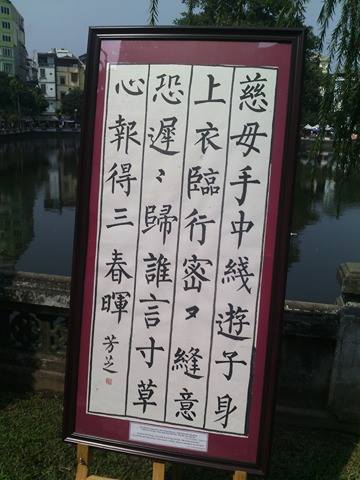 慈母手中綫遊子身
上衣臨行密々縫意
恐遲〻歸誰言寸草
心報得三春暉
芳芝